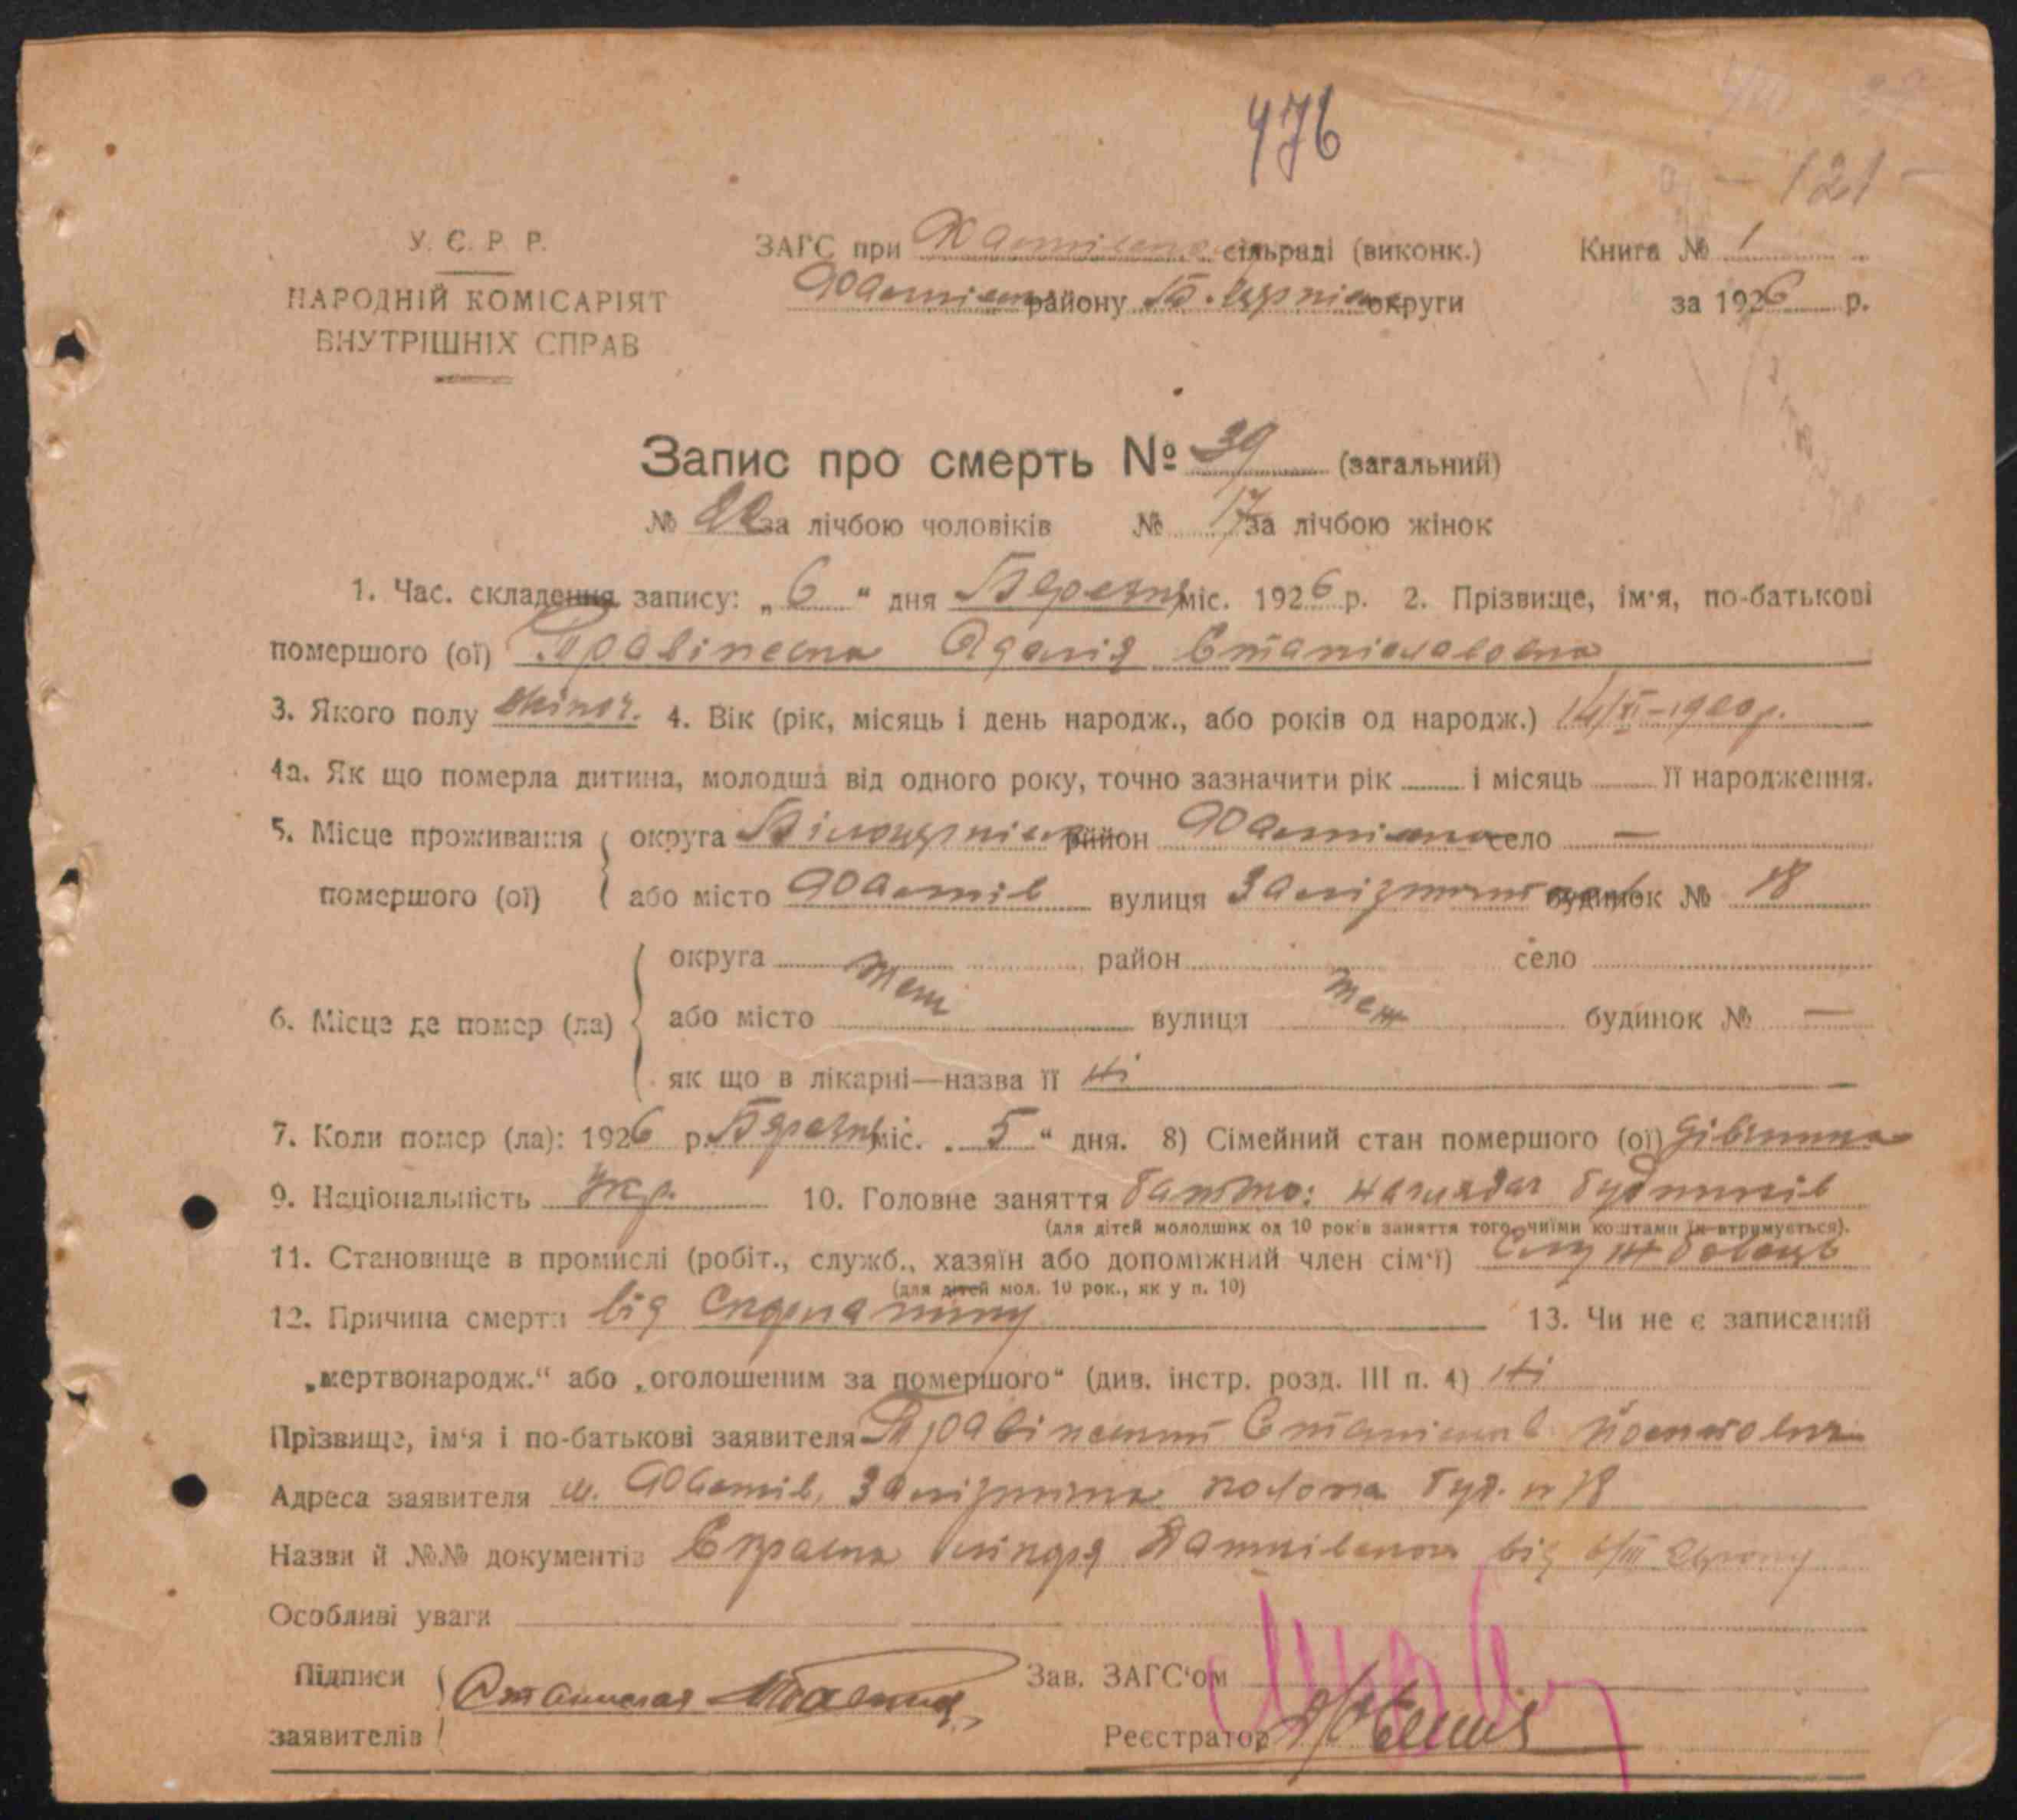 476
- 121 -
У. Є. Р. Р.
НАРОДНІЙ КОМІСАРІЯТ
ВНУТРІШНІХ СПРАВ
ЗАГС при сільраді (виконк.)
району Б. Церків округи
Книга № 1
за 1926 р.
Запис про смерть № 39 (загальний)
№ 22 за лічбою чоловіків № 17 за лічбою жінок
1. Час. складення запису: „ 6 “ дня Березня міс. 1926 р. 2. Прізвище, ім'я, по-батькові
помершого (ої) Станіславовна
3. Якого полу жіноч. 4. Вік (рік, місяць і день народж., або років од народж.)
4а. Як що померла дитина, молодша від одного року, точно зазначити рік і місяць її народження.
5. Місце проживання округа Білоцерків район село —
помершого (ої) або місто Фастів вулиця будинок № 18
6. Місце де помер (ла) округа район село
або місто теж вулиця теж будинок № —
як що в лікарні—назва її Ні
7. Коли помер (ла): 1926 р. Березня міс. „ 5 “ дня. 8) Сімейний стан помершого (ої) дівчина
9. Національність Укр. 10. Головне заняття батько: наглядач будинків
(для дітей молодших од 10 років заняття того, чиїми коштами їх втримується).
11. Становище в промислі (робіт., служб., хазяїн або допоміжний член сім'ї) службовець
(для дітей мол. 10 рок., як у п. 10)
12. Причина смерти від Скарлатини 13. Чи не є записаний
„мертвонародж.“ або „оголошеним за помершого“ (див. інстр. розд. III п. 4) Ні
Прізвище, ім'я і по-батькові заявителя Станіслав
Адреса заявителя м. Фастів, буд. № 18
Назви й №№ документів Справка лікаря від 6/III
Особливі уваги
Підписи
заявителів
Зав. ЗАГС'ом
Реєстратор